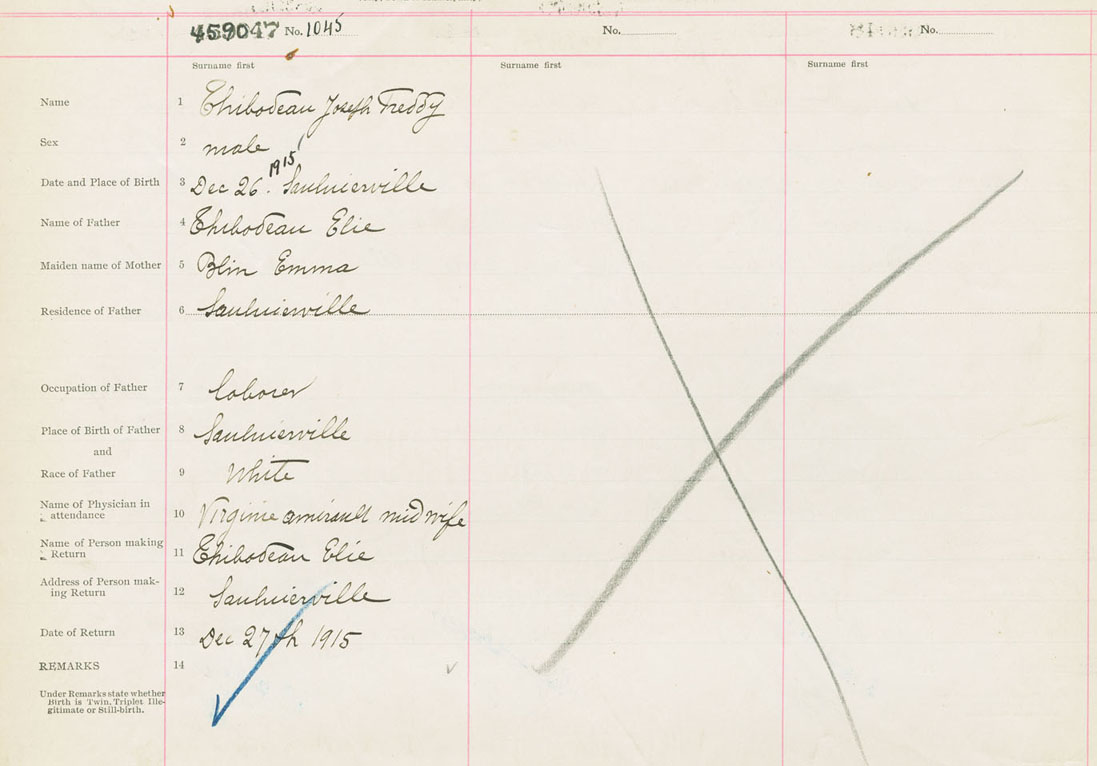 459047 No. 1045 No. No.
Surname first Surname first Surname first
Name 1 Thibodeau Joseph Freddy
Sex 2 male
1915
Date and Place of Birth 3 Dec 26. Saulnierville
Name of Father 4 Thibodeau Elie
Maiden name of Mother 5 Blin Emma
Residence of Father 6 Saulnierville
Occupation of Father 7 laborer
Place of Birth of Father 8 Saulnierville
and
Race of Father 9 White
Name of Physician in
attendance 10 Virginie amirault midwife
Name of Person making
Return 11 Thibodeau Elie
Address of Person mak-
ing Return 12 Saulnierville
Date of Return 13 Dec 27th 1915
REMARKS 14
Under Remarks state whether
Birth is Twin, Triplet Ille-
gitimate or Still-birth.